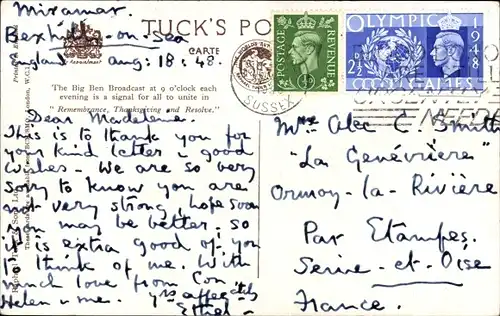 Miramar.
Bexhill-on-Sea
England Aug: 18: 48.
TUCK'S PO
CARTE
The Big Ben Broadcast at 9 o'clock each
evening is a signal for all to unite in
"Remembrance, Thanksgiving and Resolve."
Dear Madeleine.
This is to thank you for
your kind letter & good
wishes - We are so very
sorry to know you are
not very strong, hope soon
you may be better, so
it is extra good of you
to think of me. With
much love from Con
Helen & me. yrs affectly
Ethel -
POSTAGE REVENUE
SUSSEX
OLYMPIC
GAMES
1948
2½D
Mme Alec C. Smith
"La Genévrière"
Ormoy-la-Rivière
Par Etampes.
Seine-et-Oise
France.